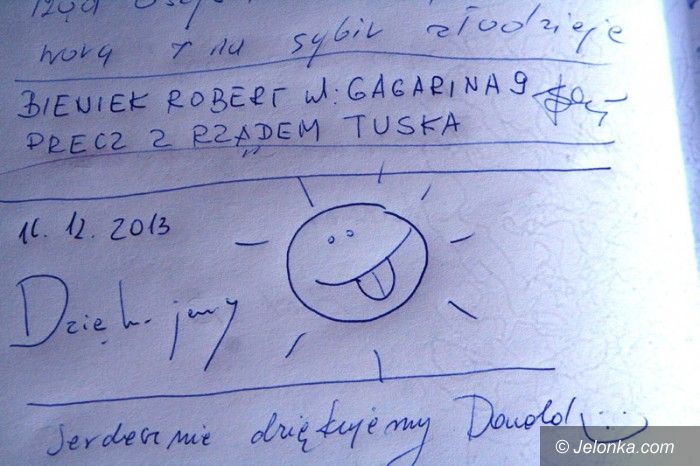 worą + na sybir złodzieje
BIENIEK ROBERT ul: GAGARINA 9
PRECZ Z RZĄDEM TUSKA
16. 12. 2013
Dziękujemy
Serdecznie dziękujemy Donald
© Jelonka.com